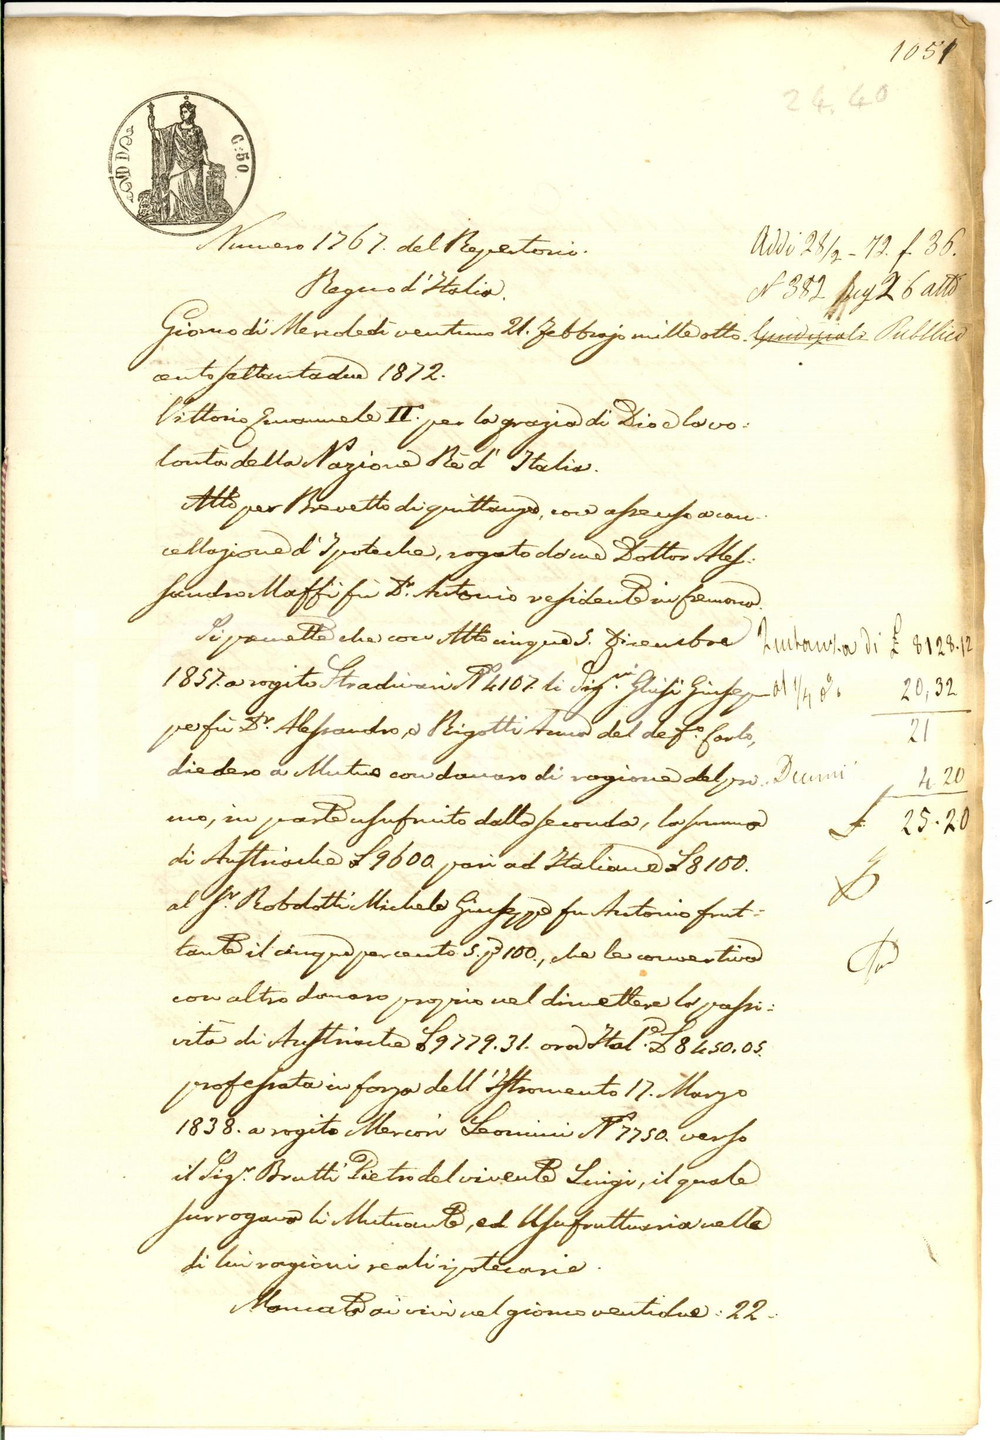 1051
24.40
C. 50
Numero 1767. del Repertorio.
Regno d'Italia.
Addi 28/2 - 72. f. 36.
N 382 Reg 26 atti
Giudiziali Pubblici
Giorno di Mercoledì ventuno 21. Febbrajo mille otto
cento settantadue 1872.
Vittorio Emanuele II. per la grazia di Dio e la vo:
lontà della Nazione Rè d'Italia.
Atto per Brevetto di quittanza, con assenso a can:
cellazione d'Ipoteche, rogato da me Dottor Ales:
sandro Maffi fu Dr. Antonio residente in Cremona.
Si premette che con Atto cinque 5. Dicembre
1857. a rogito Stradivari N° 4107. li Sigri. Ghisi Giusep
pe fu Dr. Alessandro, e Rigotti Anna del def.o Carlo,
diedero a Mutuo con danaro di ragione del pri
mo, in parte usufruito dalla seconda, la somma
di Austriache £9600. pari ad Italiane £8100.
al Sr. Robolotti Michele Giuseppe fu Antonio frut:
tante il cinque per cento 5. p 100., che le convertiva
con altro danaro proprio nel dimettere la passi:
vità di Austriache £9779.31. ora Ital.e £8450.05.
professata in forza dell'Istromento 17. Marzo
1838. a rogito Mercori Leomini N° 7750. verso
il Sigr. Brutti Pietro del vivente Luigi, il quale
surrogava li Mutuanti, ed Usufruttuaria nelle
di lui ragioni reali ipotecarie.
Mancato ai vivi nel giorno ventidue: 22
Quitanza di £ 8128.12
al 1/4 % 20,32
21
Decimi 4.20
£ 25.20